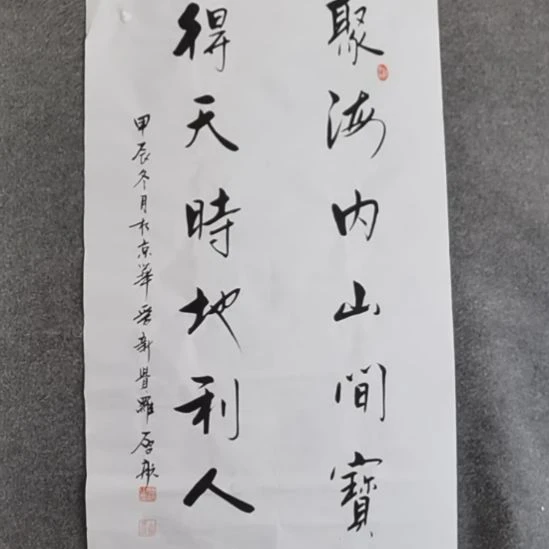 聚海内山間寶
得天時地利人
甲辰冬月於京華 愛新覺羅 啓